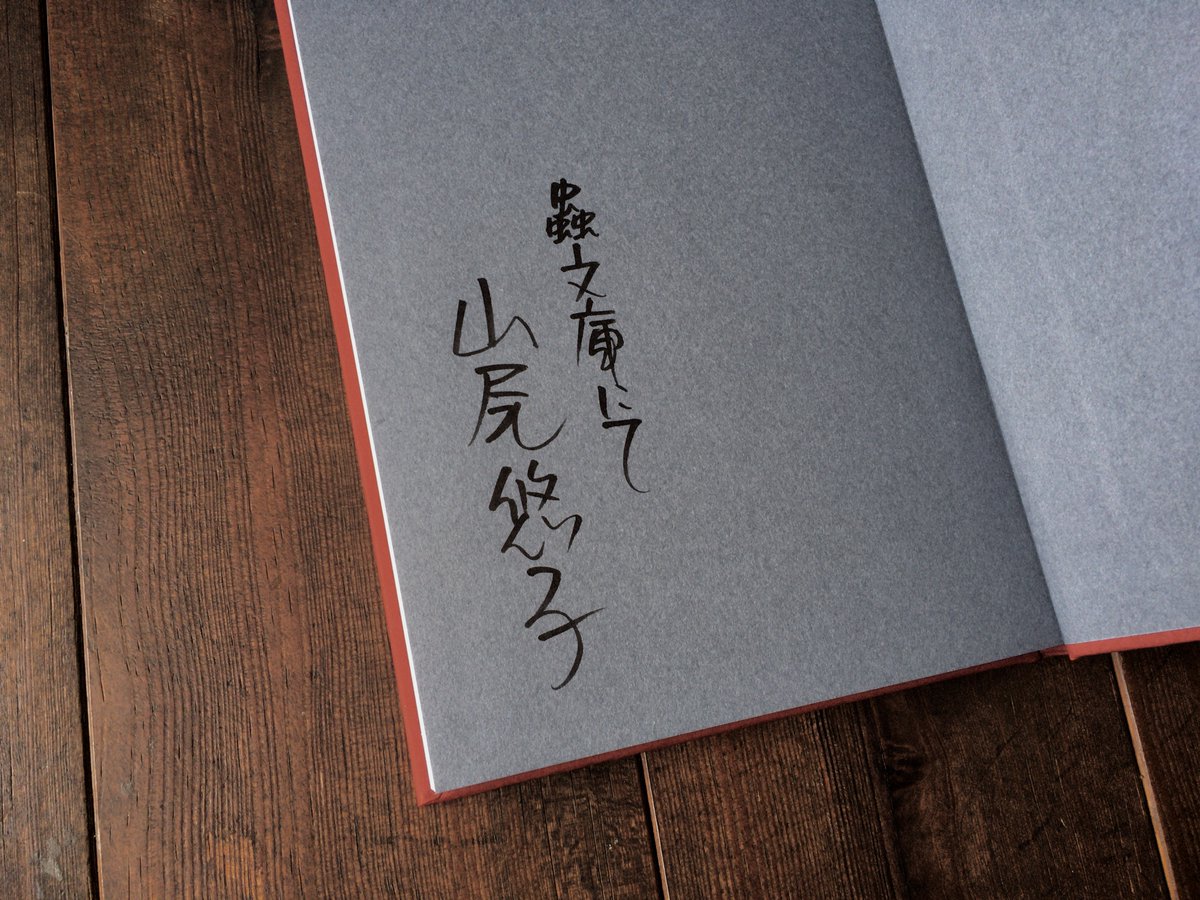 蟲文庫にて
山尾悠子